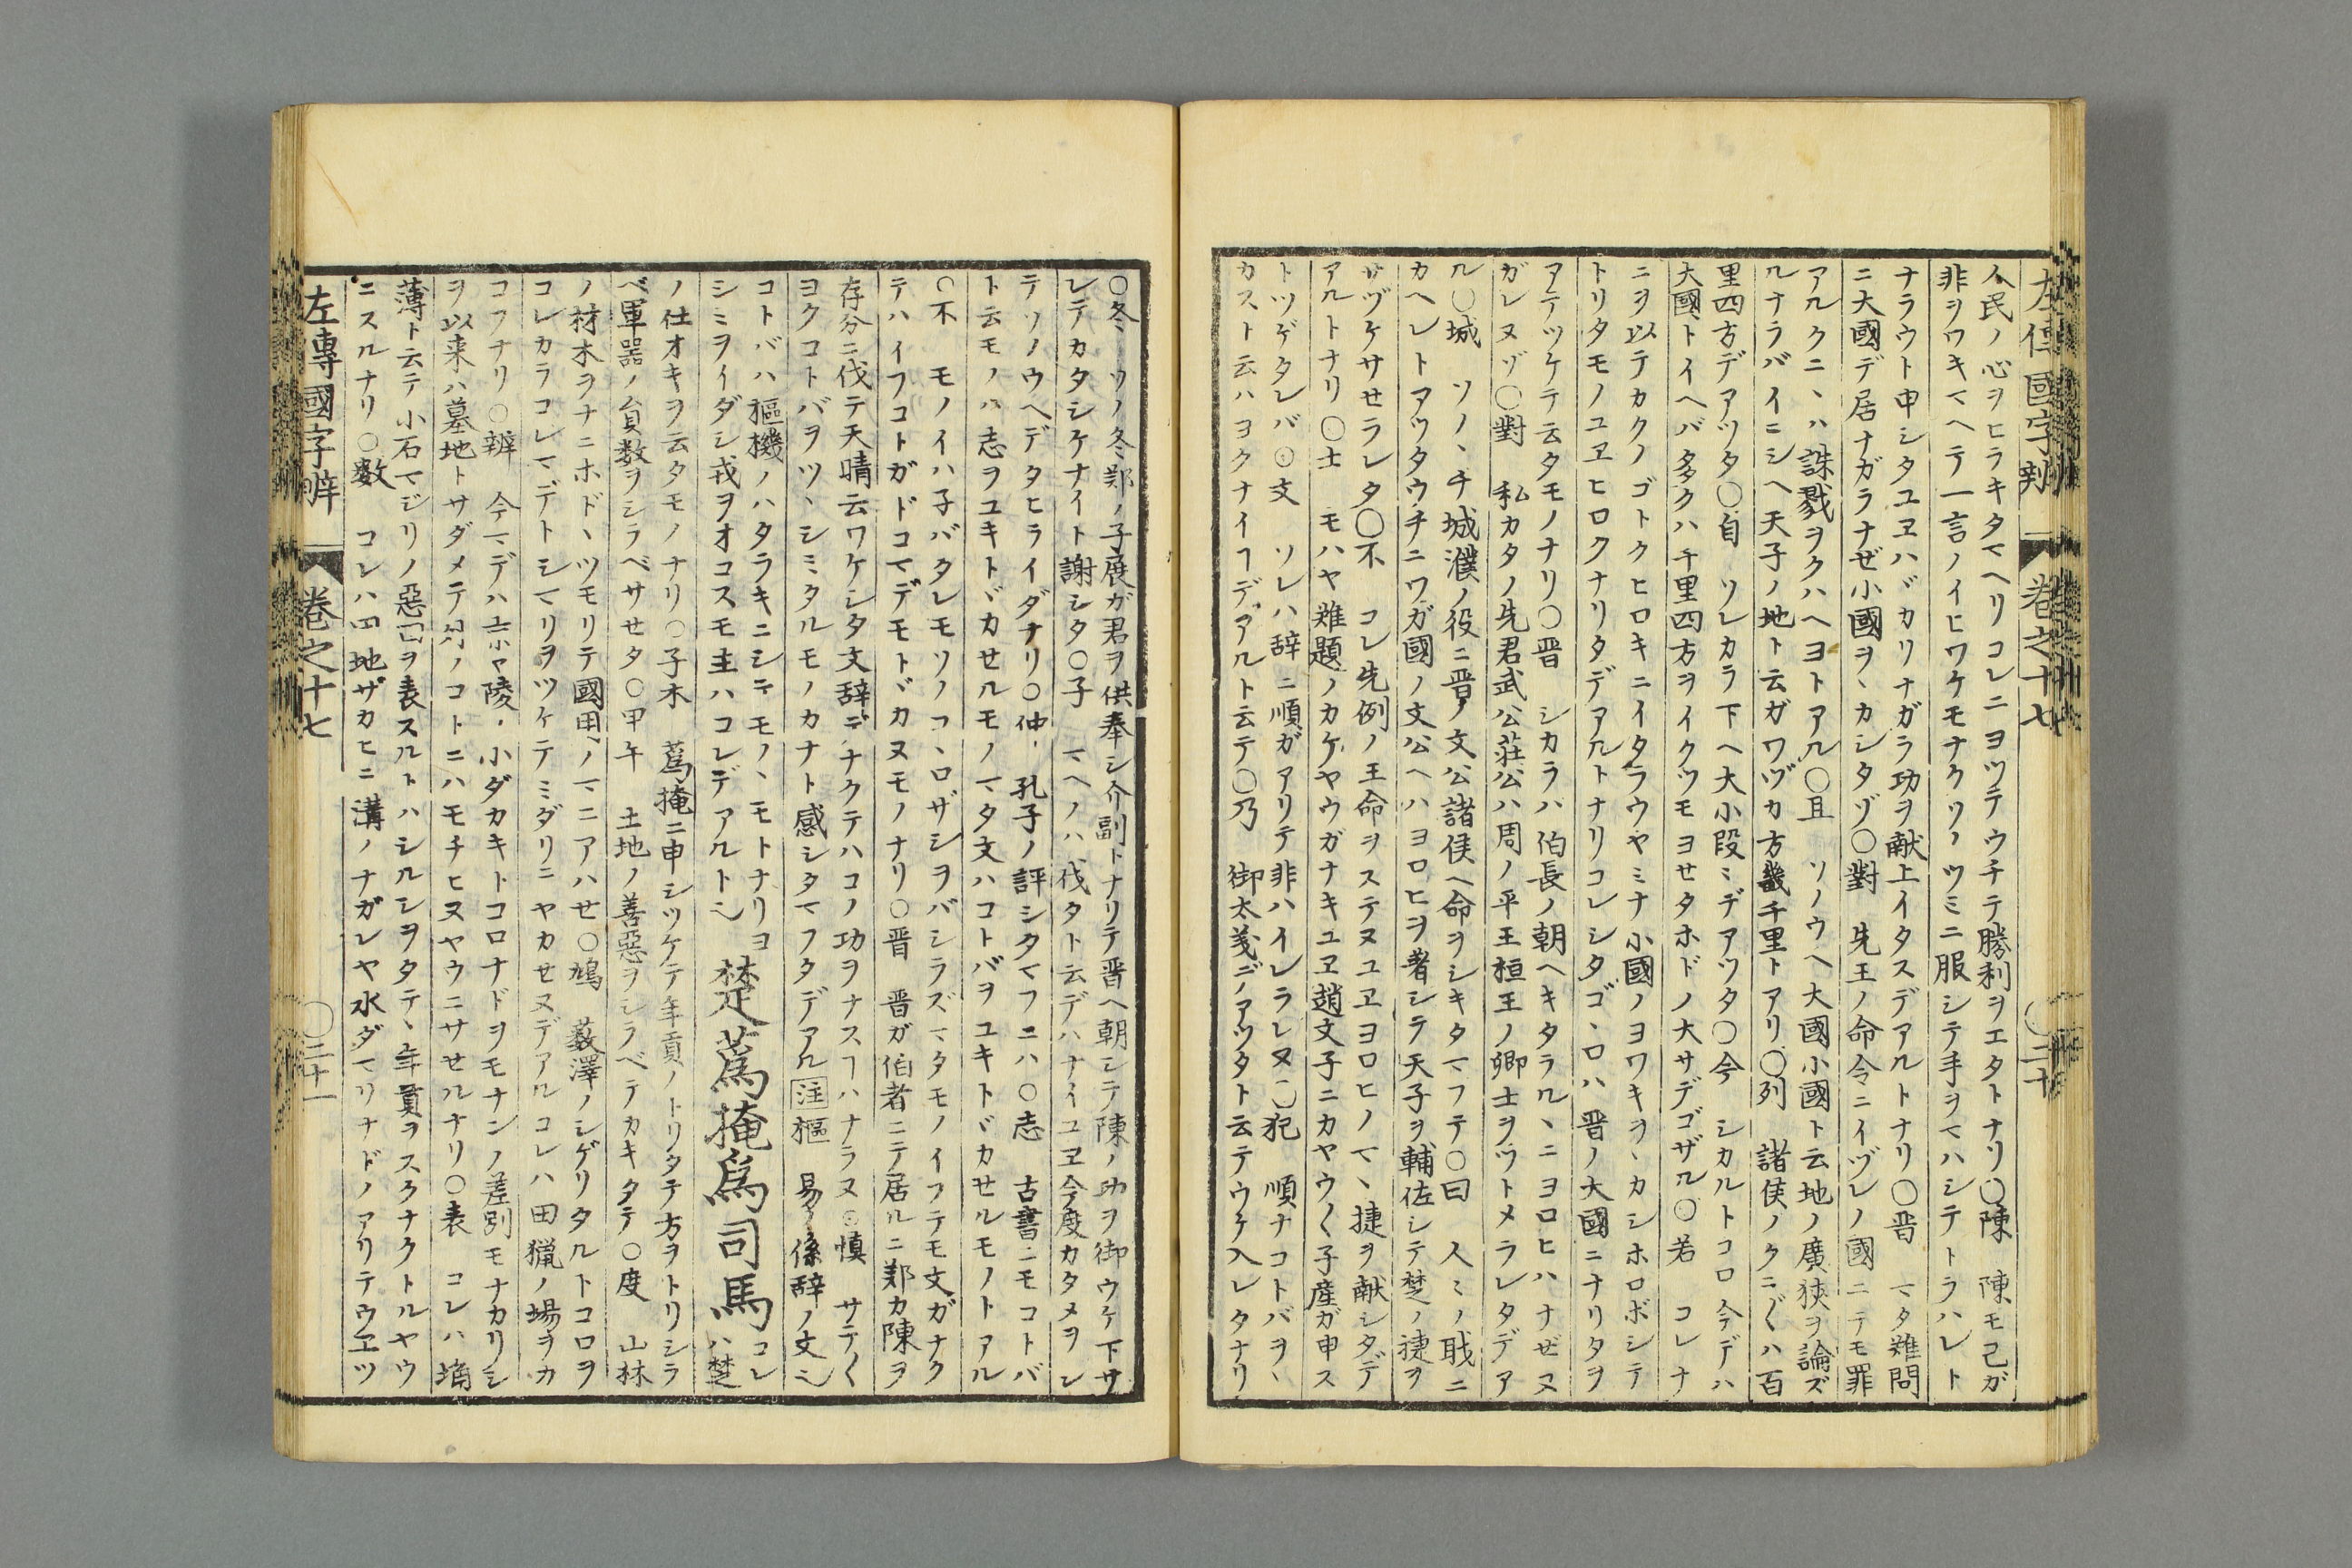 左傳國字辨 卷之十七 〇二十
人民ノ心ヲヒラキタマヘリコレニヨツテウチテ勝利ヲエタトナリ〇陳 陳モ己ガ
非ヲワキマヘテ一言ノイヒワケモナクソノツミニ服シテ手ヲマハシテトラハレト
ナラウト申シタユヱハヾカリナガラ功ヲ献上イタスデアルトナリ〇晋 マタ難問
ニ大國デ居ナガラナゼ小國ヲヽカシタゾ〇對 先王ノ命令ニイヅレノ國ニテモ罪
アルクニヽハ誅戮ヲクハヘヨトアル〇且 ソノウヘ大國小國ト云地ノ廣狹ヲ論ズ
ルナラバイニシヘ天子ノ地ト云ガワヅカ方畿千里トアリ〇列 諸侯ノクニ〲ハ百
里四方デアツタ〇自 ソレカラ下ヘ大小段ミデアツタ〇今 シカルトコロ今デハ
大國トイヘバ多クハ千里四方ヲイクツモヨセタホドノ大サデゴザル〇若 コレナ
ニヲ以テカクノゴトクヒロキニイタラウヤミナ小國ノヨワキヲヽカシホロボシテ
トリタモノユヱヒロクナリタデアルトナリコレシタゴヽロハ晋ノ大國ニナリタヲ
アテツケテ云タモノナリ〇晋 シカラハ伯長ノ朝ヘキタラルヽニヨロヒハナゼヌ
ガレヌゾ〇對 私カタノ先君武公莊公ハ周ノ平王桓王ノ卿士ヲツトメラレタデア
ル〇城 ソノヽチ城濮ノ役ニ晋ノ文公諸侯ヘ命ヲシキタマフテ〇曰 人ミノ職ニ
カヘレトアツタウチニワガ國ノ文公ヘハヨロヒヲ著シテ天子ヲ輔佐シテ楚ノ捷ヲ
サヅケサセラレタ〇不 コレ先例ノ王命ヲステヌユヱヨロヒノマヽ捷ヲ献シタデ
アルトナリ〇士 モハヤ難題ノカケヤウガナキユヱ趙文子ニカヤウ〱子産ガ申ス
トツゲタレバ〇文 ソレハ辞ニ順ガアリテ非ハイレラレヌ〇犯 順ナコトバヲヽ
カスト云ハヨクナイヿデアルト云テ〇乃 御太義デアツタト云テウケ入レタナリ
〇冬 ソノ冬鄭ノ子展ガ君ヲ供奉シ介副トナリテ晋ヘ朝シテ陳ノ功ヲ御ウケ下サ
レテカタシケナイト謝シタ〇子 マヘノハ伐タト云デハナイユヱ今度カタメヲシ
テソノウヘデタヒライダナリ〇仲 孔子ノ評シタマフニハ〇志 古書ニモコトバ
ト云モノハ志ヲユキトヾカせルモノマタ文ハコトバヲユキトヾカせルモノトアル
〇不 モノイハ子バタレモソノコヽロザシヲバシラズマタモノイフテモ文ガナク
テハイフコトガドコマデモトヾカヌモノナリ〇晋 晋ガ伯者ニテ居ルニ鄭カ陳ヲ
存分ニ伐テ天晴云ワケシタ文辞デナクテハコノ功ヲナスヿハナラヌ〇慎 サテ〱
ヨクコトバヲツヽシミタルモノカナト感シタマフタデアル注樞 易ノ係辞ノ文ニ
コトバハ樞機ノハタラキニシテモノヽモトナリヨ
シミヲイダシ戎ヲオコスモ主ハコレデアルト〻
楚蒍掩爲司馬 コレハ楚
ノ仕オキヲ云タモノナリ〇子木 蒍掩ニ申シツケテ年貢ノトリタテ方ヲトリシラ
ベ軍器ノ員数ヲシラベサせタ〇甲午 土地ノ善惡ヲシラベテカキタテ〇度 山林
ノ材木ヲナニホドヽツモリテ國用ノマニアハせ〇鳩 薮澤ノシゲリタルトコロヲ
コレカラコレマデトシマリヲツケテミダリニヤカせヌデアルコレハ田獵ノ場ヲカ
コフナリ〇辨 今マデハ京ヤ陵ノ小ダカキトコロナドヲモナンノ差別モナカリシ
ヲ以来ハ墓地トサダメテ別ノコトニハモチヒヌヤウニサせルナリ〇表 コレハ埆
薄ト云テ小石マジリノ惡田ヲ表スルトハシルシヲタテヽ年貢ヲスクナクトルヤウ
ニスルナリ〇数 コレハ田地ザカヒニ溝ノナガレヤ水ダマリナドノアリテウヱツ
左傳國字辨 卷之十七 〇二十一